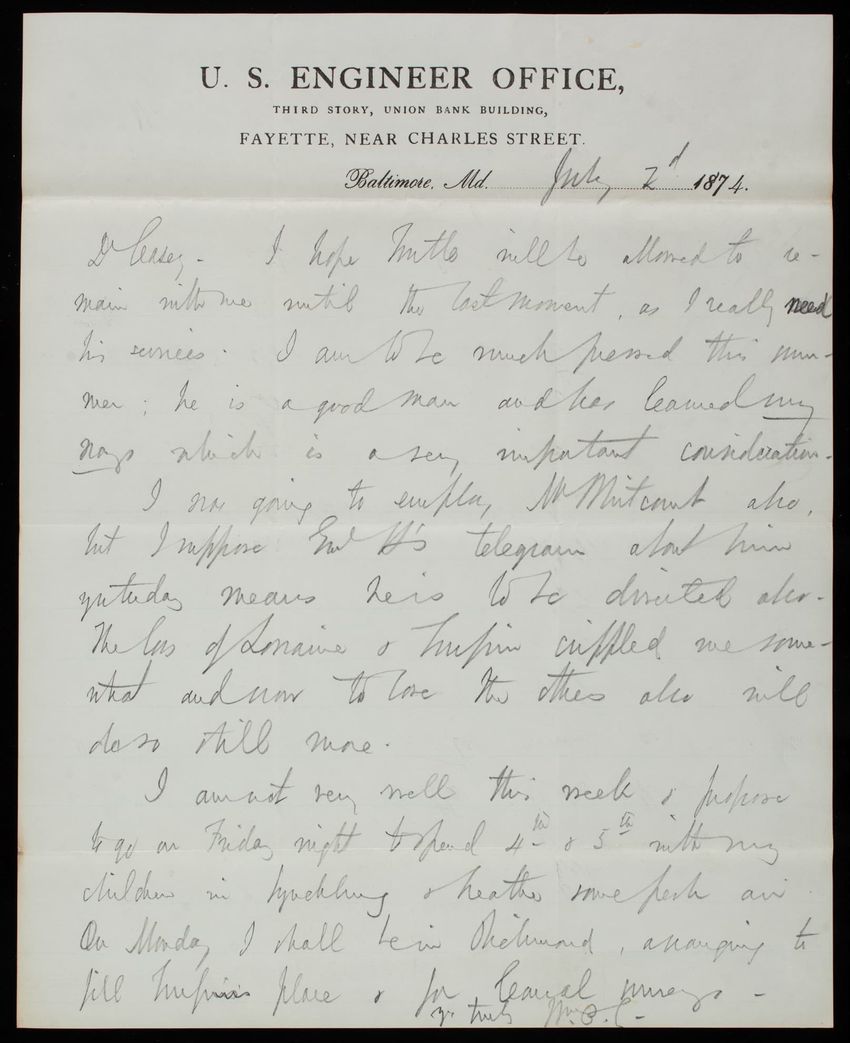 U. S. ENGINEER OFFICE,
THIRD STORY, UNION BANK BUILDING,
FAYETTE, NEAR CHARLES STREET.
Baltimore, Md. July 2d 1874.
Dr Casey - I hope Tuttle will be allowed to re-
main with me until the last moment, as I really need
his services. I am to be much pressed this sum-
mer; he is a good man and has learned my
ways which is a very important consideration.
I was going to employ Mr also,
but I suppose Genl H's telegram about him
yesterday means he is to be directed also.
The loss of Lorraine & Turpin crippled me some-
what and now to lose the others also will
do so still more.
I am not very well this week & propose
to go on Friday night to spend 4th & 5th with my
children in Lynchburg & breathe some fresh air
On Monday I shall be in Richmond, arranging to
fill Turpin's place & for Canal surveys -
yrs truly Wm. P. C-